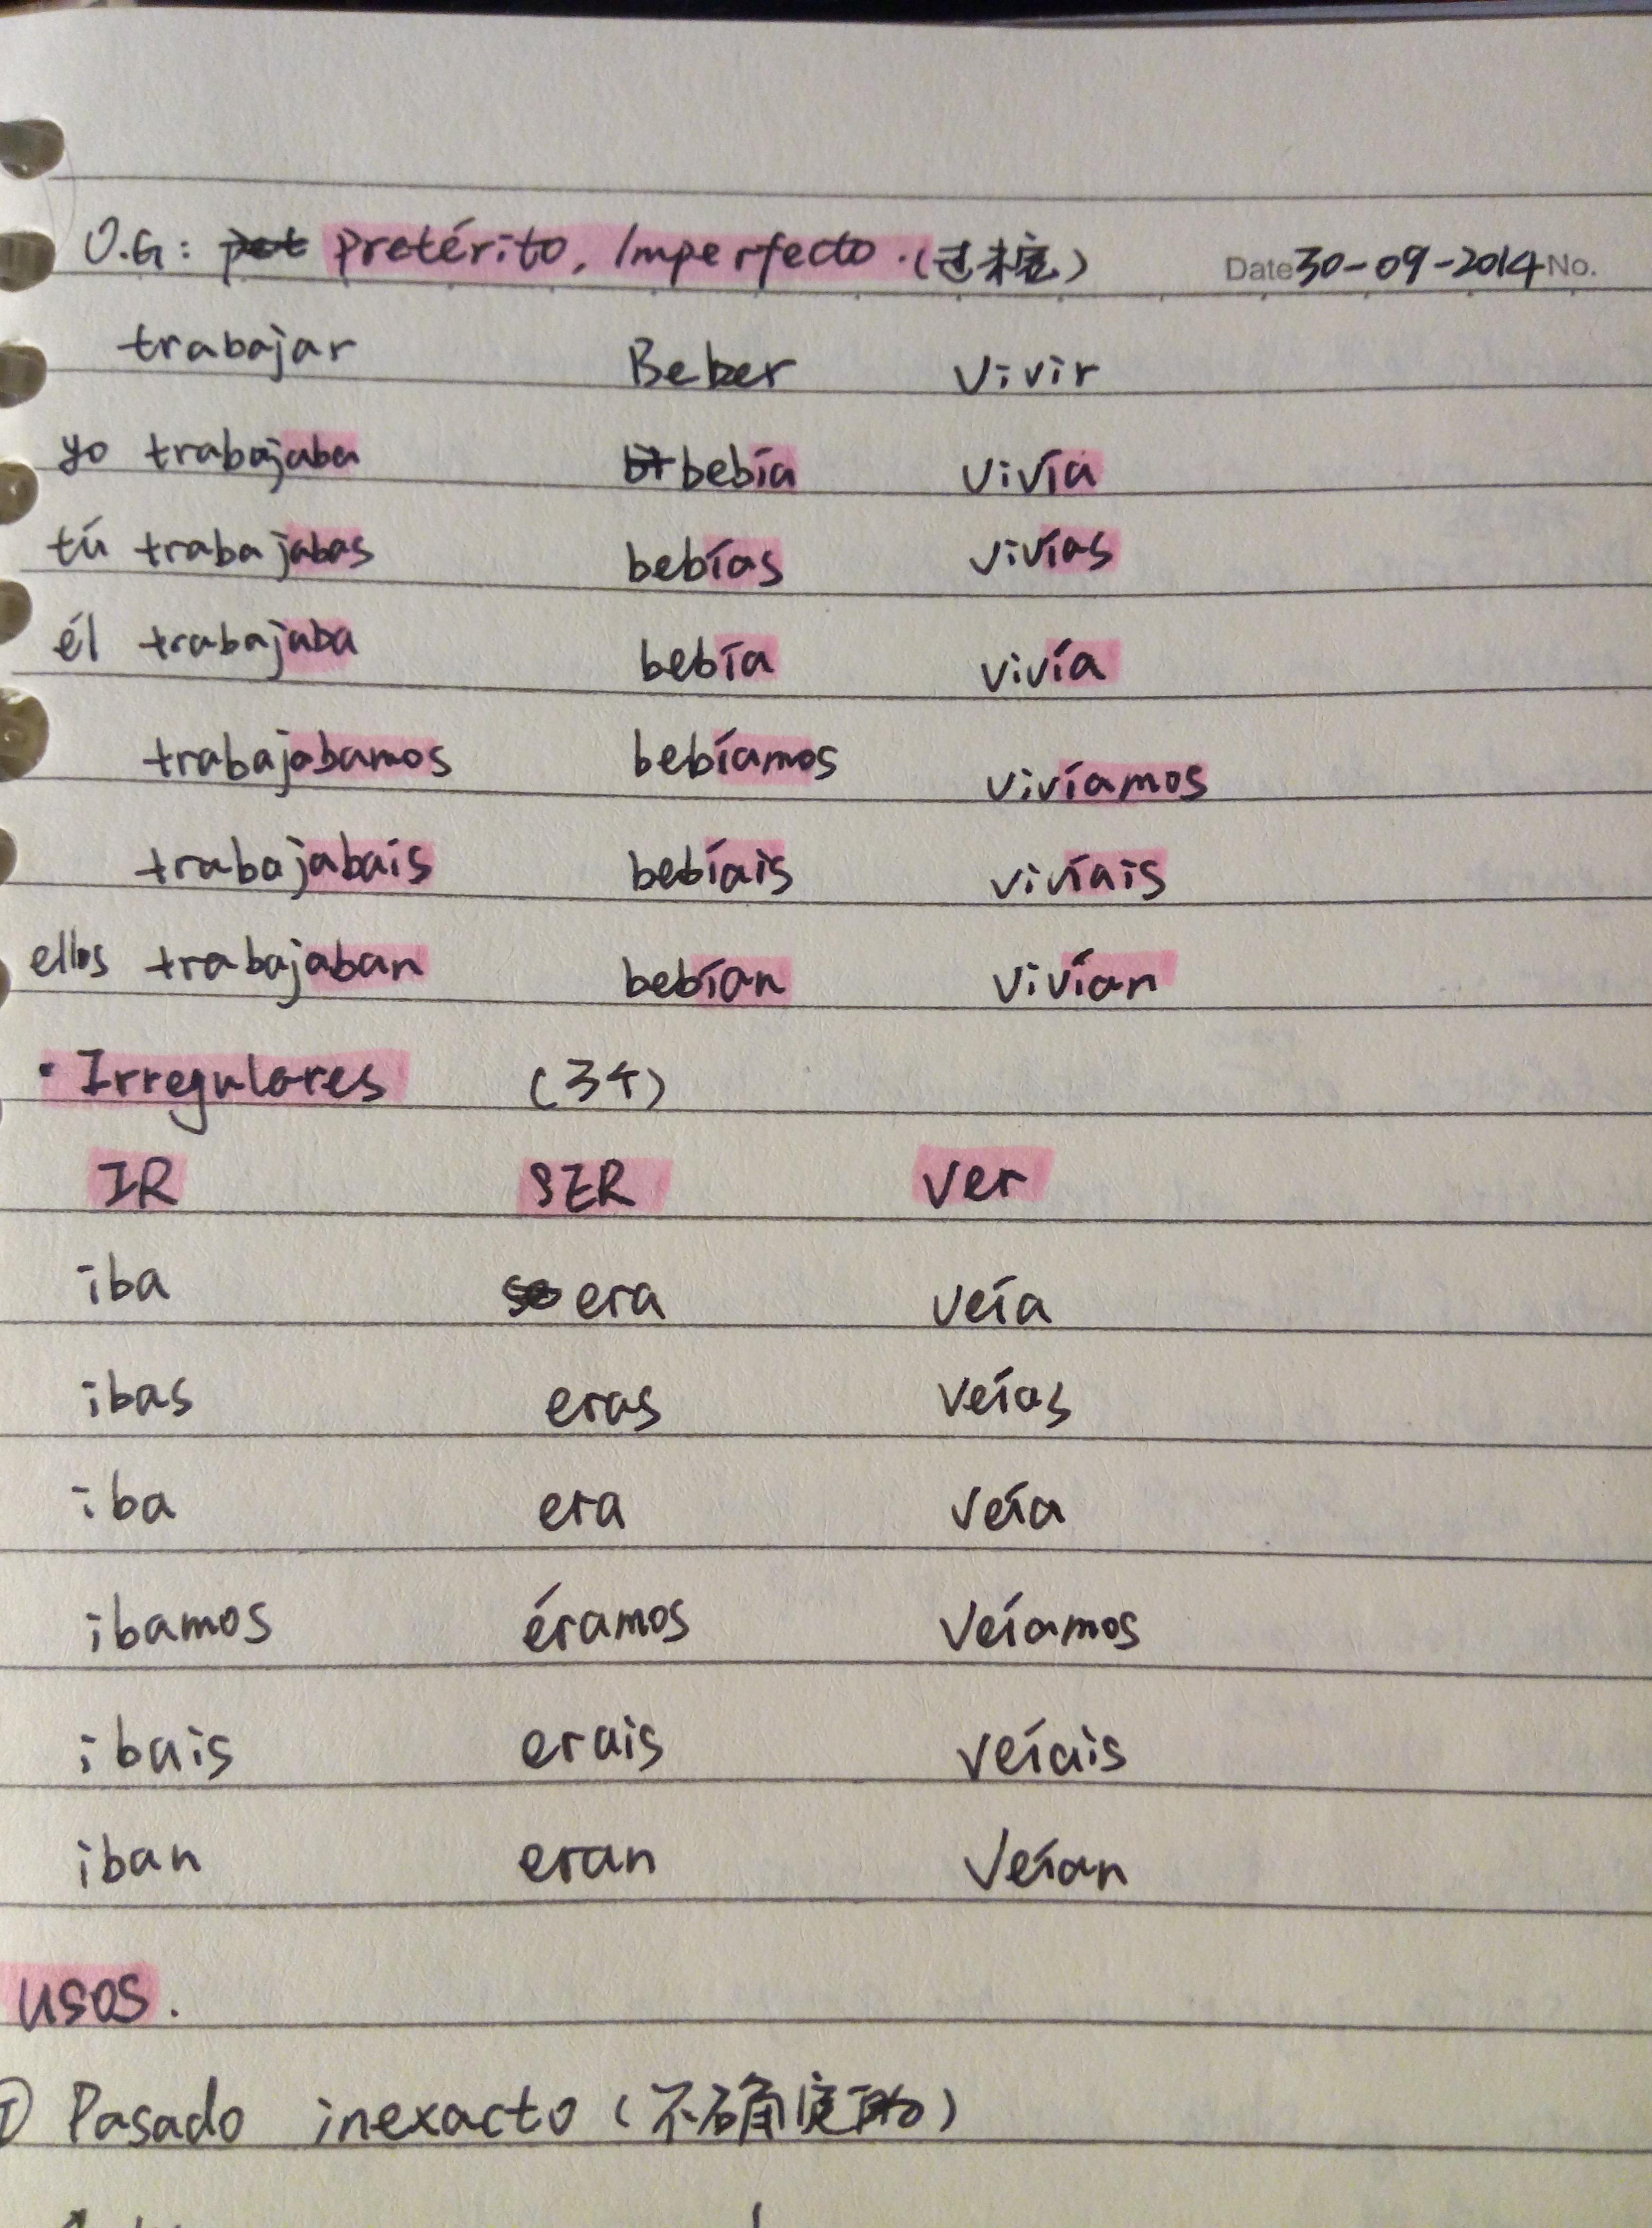 O.G: pretérito. Imperfecto. (过未完) Date 30-09-2014 No.
trabajar Beber vivir
yo trabajaba bebía vivía
tú trabajabas bebías vivías
él trabajaba bebía vivía
trabajabamos bebíamos vivíamos
trabajabais bebíais vivíais
ellos trabajaban bebían vivían
· Irregulares (3个)
IR SER ver
iba era veía
ibas eras veías
iba era veía
ibamos éramos veíamos
ibais erais veíais
iban eran veían
usos.
① Pasado inexacto (不确定的)